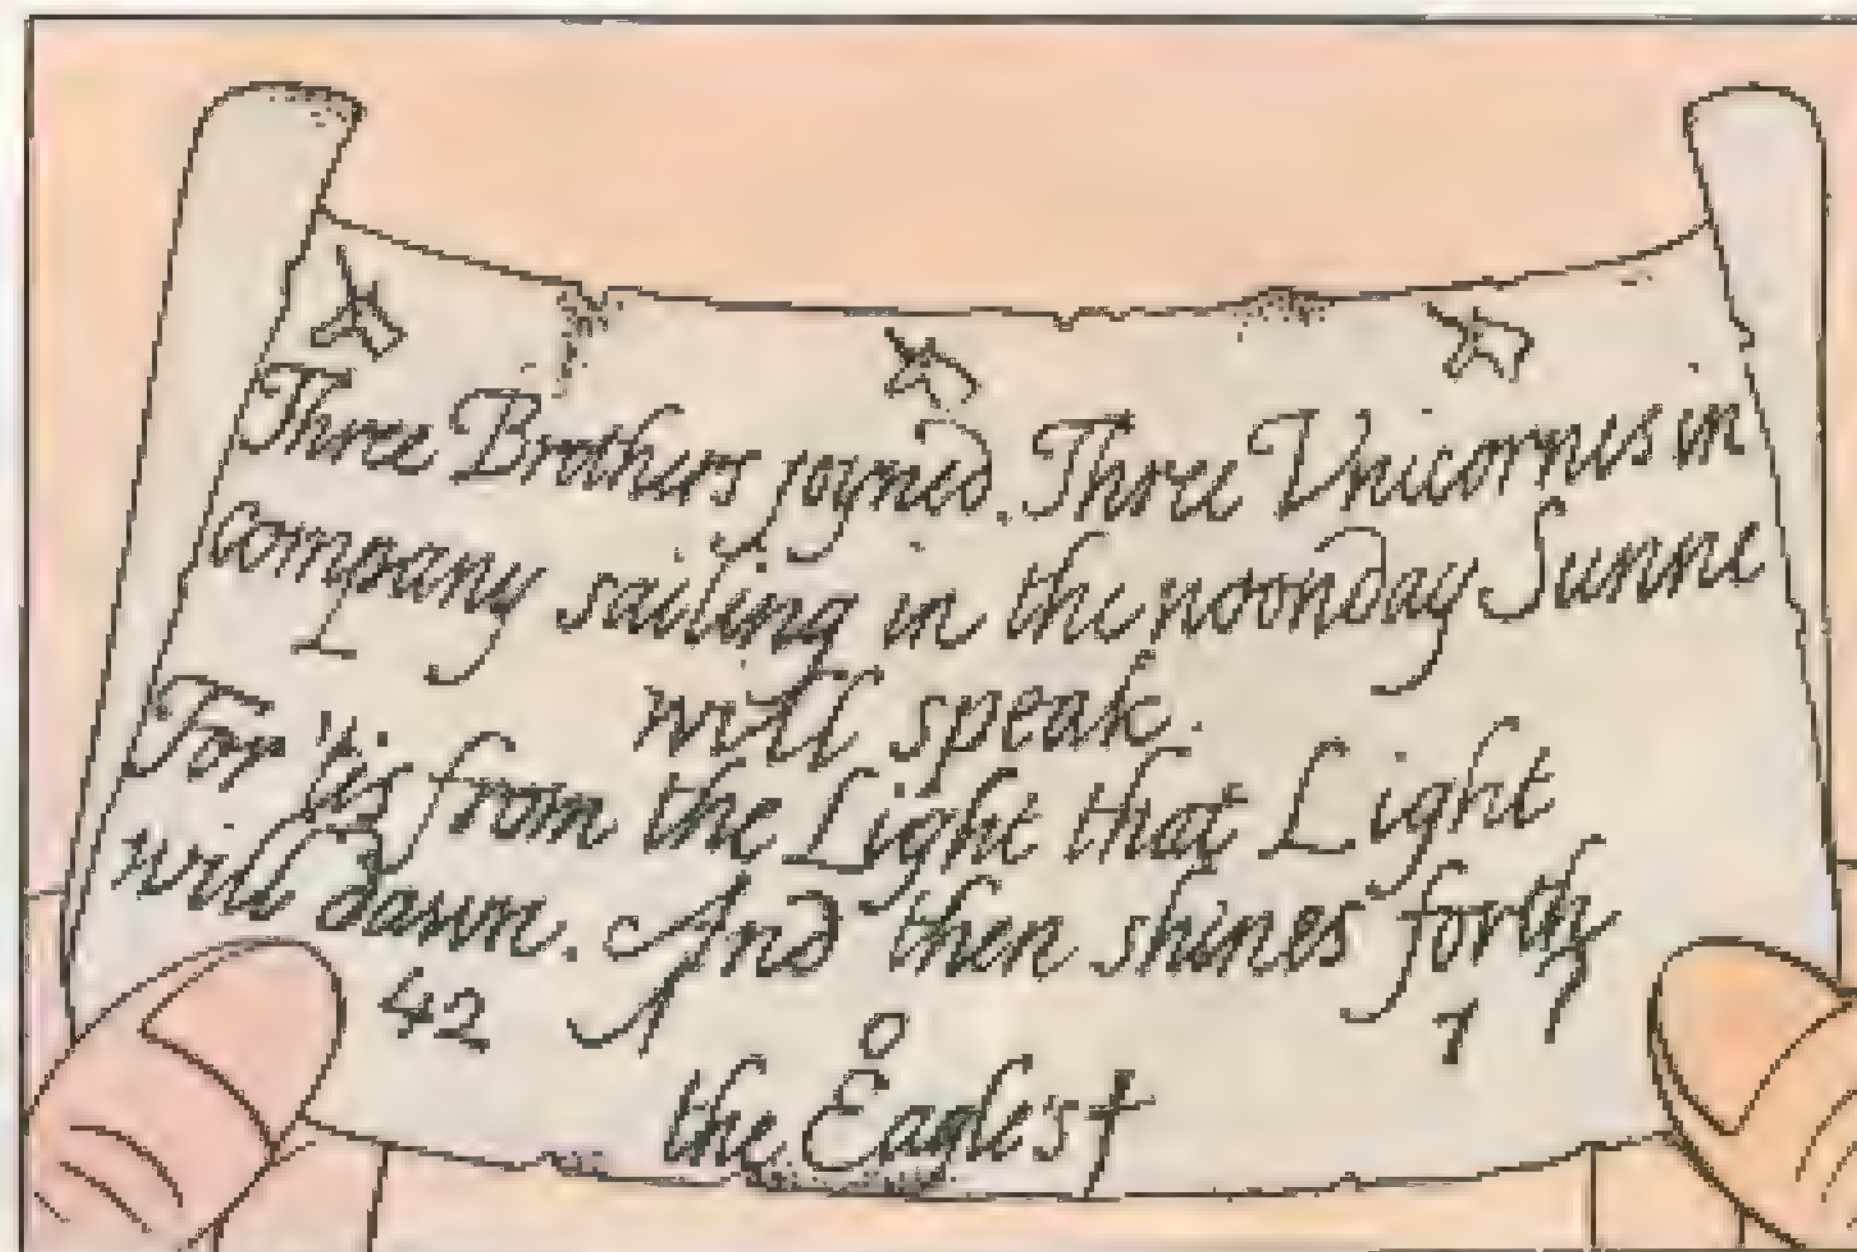 Three Brothers joyned. Three Unicornes in
company sailing in the noonday Sunne
will speak.
For 'tis from the Light that Light
will dawn. And then shines forth
42 o 7
the Eagles†